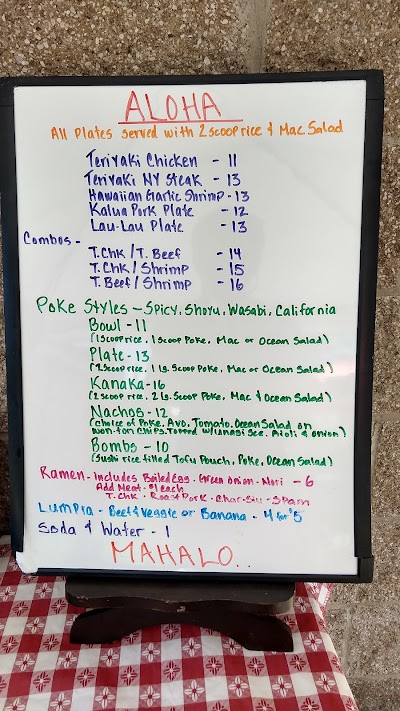 ALOHA
All Plates served with 2 scoop rice & Mac Salad
Teriyaki Chicken - 11
Teriyaki NY Steak - 13
Hawaiian Garlic Shrimp - 13
Kalua Pork Plate - 12
Lau-Lau Plate - 13
Combos -
T.Chk / T. Beef - 14
T.Chk / Shrimp - 15
T.Beef / Shrimp - 16
Poke Styles - Spicy, Shoyu, Wasabi, California
Bowl - 11
(1 scoop rice, 1 scoop Poke, Mac or Ocean Salad)
Plate - 13
(2 scoop rice, 1 Lg. Scoop Poke, Mac or Ocean Salad)
Kanaka - 16
(2 scoop rice, 2 Lg. Scoop Poke, Mac & Ocean Salad)
Nachos - 12
(Choice of Poke, Avo, Tomato, Ocean Salad on
Won-ton Chips, Topped w/Unagi Sce, Aioli & Onion)
Bombs - 10
(Sushi rice filled Tofu Pouch, Poke, Ocean Salad)
Ramen - includes Boiled Egg - Green Onion - Nori - 6
Add Meat - $1 each
T. Chk - Roast Pork - Char-Siu - Spam
Lumpia - Beef & Veggie or Banana - 4 for $5
Soda & Water - 1
MAHALO..